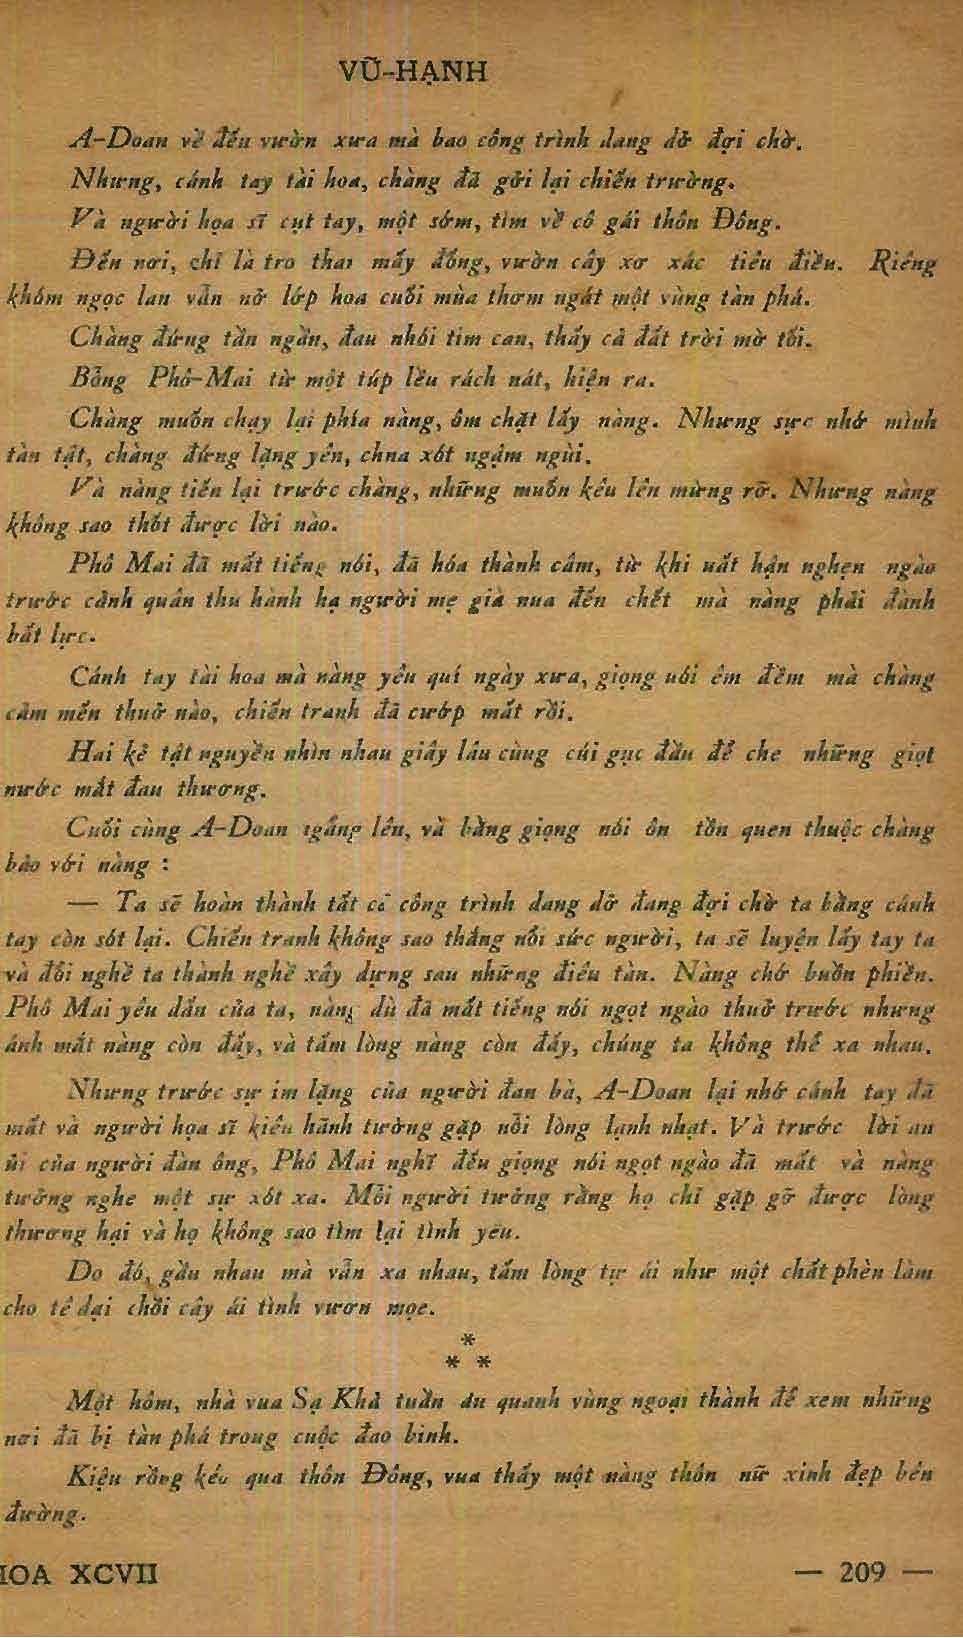 VŨ-HẠNH
A-Doan về đến vườn xưa mà bao công trình dang dở đợi chờ.
Nhưng, cánh tay tài hoa, chàng đã gởi lại chiến trường.
Và người họa sĩ cụt tay, một sớm, tìm về cô gái thôn Đông.
Đến nơi, chỉ là tro than mấy đống, vườn cây xơ xác tiêu điều. Riêng
khóm ngọc lan vẫn nở lớp hoa cuối mùa thơm ngát một vùng tàn phá.
Chàng đứng tần ngần, đau nhói tim can, thấy cả đất trời mờ tối.
Bỗng Phô-Mai từ một túp lều rách nát, hiện ra.
Chàng muốn chạy lại phía nàng, ôm chặt lấy nàng. Nhưng sực nhớ mình
tàn tật, chàng đứng lặng yên, chua xót ngậm ngùi.
Và nàng tiến lại trước chàng, những muốn kêu lên mừng rỡ. Nhưng nàng
không sao thốt được lời nào.
Phô Mai đã mất tiếng nói, đã hóa thành câm, từ khi uất hận nghẹn ngào
trước cảnh quân thu hành hạ người mẹ già nua đến chết mà nàng phải đành
bất lực.
Cánh tay tài hoa mà nàng yêu quí ngày xưa, giọng nói êm đềm mà chàng
cảm mến thuở nào, chiến tranh đã cướp mất rồi.
Hai kẻ tật nguyền nhìn nhau giây lâu cùng cúi gục đầu để che những giọt
nước mắt đau thương.
Cuối cùng A-Doan ngẩng lên, và bằng giọng nói ôn tồn quen thuộc chàng
bảo với nàng :
— Ta sẽ hoàn thành tất cả công trình dang dở đang đợi chờ ta bằng cánh
tay còn sót lại. Chiến tranh không sao thắng nổi sức người, ta sẽ luyện lấy tay ta
và đổi nghề ta thành nghề xây dựng sau những điêu tàn. Nàng chớ buồn phiền.
Phô Mai yêu dấu của ta, nàng dù đã mất tiếng nói ngọt ngào thuở trước nhưng
ánh mắt nàng còn đấy, và tấm lòng nàng còn đấy, chúng ta không thể xa nhau.
Nhưng trước sự im lặng của người đan bà, A-Doan lại nhớ cánh tay đã
mất và người họa sĩ kiêu hãnh tưởng gặp nỗi lòng lạnh nhạt. Và trước lời an
ủi của người đàn ông, Phô Mai nghĩ đến giọng nói ngọt ngào đã mất và nàng
tưởng nghe một sự xót xa. Mỗi người tưởng rằng họ chỉ gặp gỡ được lòng
thương hại và họ không sao tìm lại tình yêu.
Do đó, gần nhau mà vẫn xa nhau, tấm lòng tự ái như một chất phèn làm
cho tê dại chồi cây ái tình vươn mọc.
*
* *
Một hôm, nhà vua Sạ Khả tuần du quanh vùng ngoại thành để xem những
nơi đã bị tàn phá trong cuộc đao binh.
Kiệu rồng kéo qua thôn Đông, vua thấy một nàng thôn nữ xinh đẹp bên
đường.
IOA XCVII — 209 —